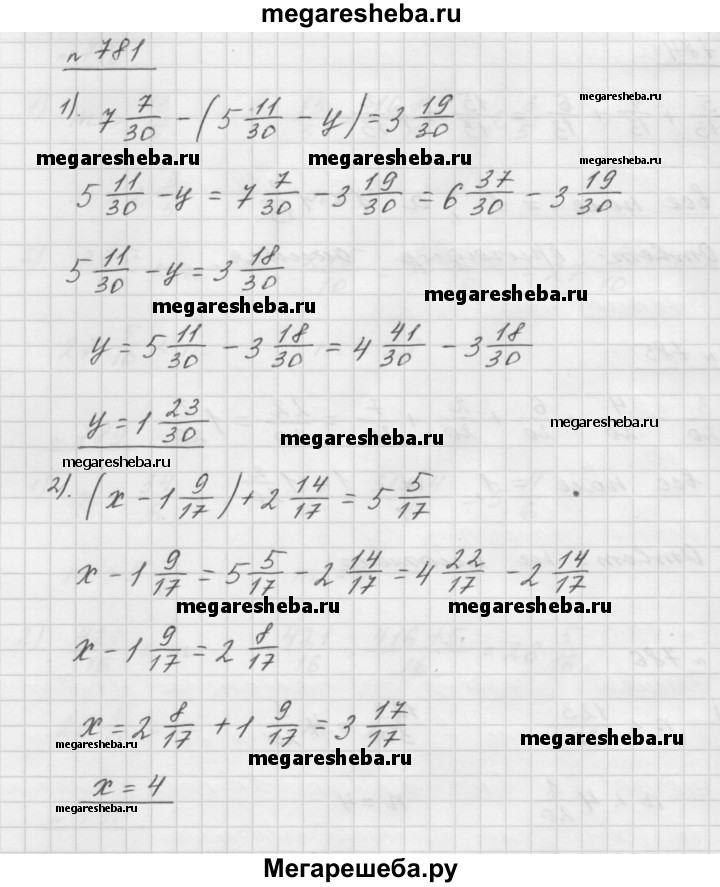 megaresheba.ru
№ 781
1). 7 7/30 - (5 11/30 - y) = 3 19/30
megaresheba.ru
megaresheba.ru megaresheba.ru megaresheba.ru
5 11/30 - y = 7 7/30 - 3 19/30 = 6 37/30 - 3 19/30
5 11/30 - y = 3 18/30
megaresheba.ru megaresheba.ru
y = 5 11/30 - 3 18/30 = 4 41/30 - 3 18/30
y = 1 23/30
megaresheba.ru megaresheba.ru
megaresheba.ru
2). (x - 1 9/17) + 2 14/17 = 5 5/17
x - 1 9/17 = 5 5/17 - 2 14/17 = 4 22/17 - 2 14/17
megaresheba.ru megaresheba.ru
x - 1 9/17 = 2 8/17
x = 2 8/17 + 1 9/17 = 3 17/17
megaresheba.ru megaresheba.ru megaresheba.ru
x = 4
megaresheba.ru megaresheba.ru
Мегарешеба.ру